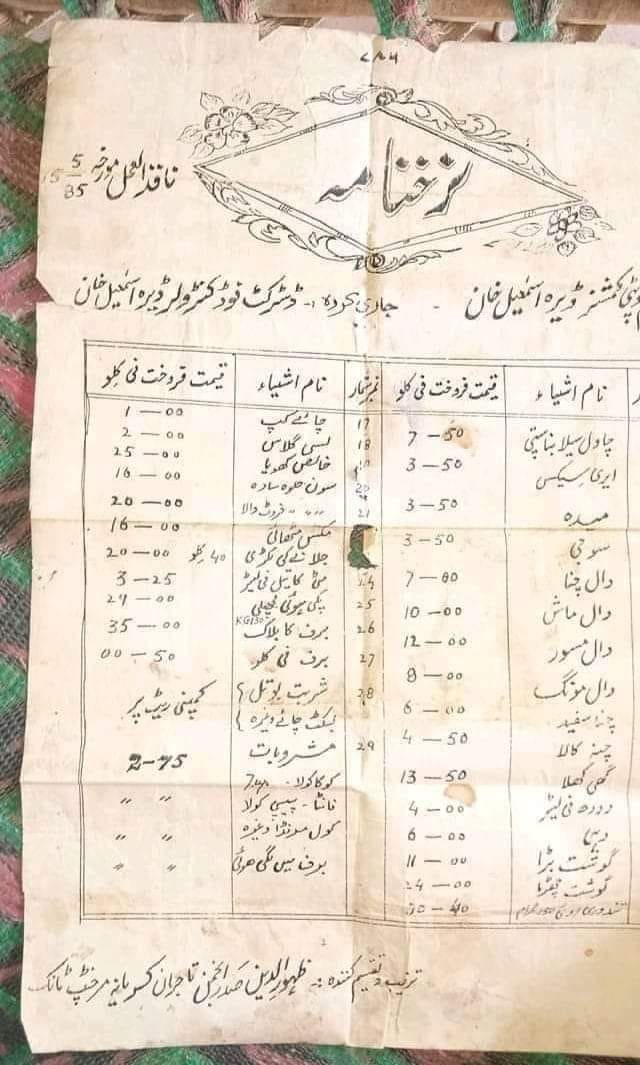 ۷۸۶
نرخنامہ
نافذ العمل مورخہ 15 5/85
ڈپٹی کمشنر ڈیرہ اسمٰعیل خان - جاری کردہ :- ڈسٹرکٹ فوڈ کنٹرولر ڈیرہ اسمٰعیل خان
نام اشیاء قیمت فروخت فی کلو نمبر شمار نام اشیاء قیمت فروخت فی کلو
چاول سیلا بناسپتی 7 — 50
ایری سیکس 3 — 50
میدہ 3 — 50
سوجی 3 — 50
دال چنا 7 — 00
دال ماش 10 — 00
دال مسور 12 — 00
دال مونگ 8 — 00
چنا سفید 6 — 00
چنہ کالا 4 — 50
گھی کھلا 13 — 50
دودھ فی لیٹر 4 — 00
دہی 6 — 00
گوشت بڑا 11 — 00
گوشت چھوٹا 24 — 00
تندوری روٹی گرام 40
17 چائے کپ 1 — 00
18 لسی گلاس 2 — 00
خالص کھویا 25 — 00
20 سوہن حلوہ سادہ 16 — 00
21 〃 〃 فروٹ والا 20 — 00
مکس مٹھائی 16 — 00
جلانے کی لکڑی 40 کلو 20 — 00
24 مٹی کا تیل فی لیٹر 3 — 25
25 پکی ہوئی مچھلی 24 — 00
26 برف کا بلاک 35 — 00
27 برف فی کلو 00 — 50
28 شربت بوتل } کمپنی ریٹ پر
بسکٹ چائے وغیرہ }
29 مشروبات 2-75
کوکا کولا - 7up
فانٹا - پیپسی کولا 〃 〃
گول سوڈا وغیرہ 〃 〃
برف میں لگی ہوئی 〃 〃
ترتیب و تقسیم کنندہ :- ظہور الدین صدر انجمن تاجران کریانہ مرچنٹ ٹانک